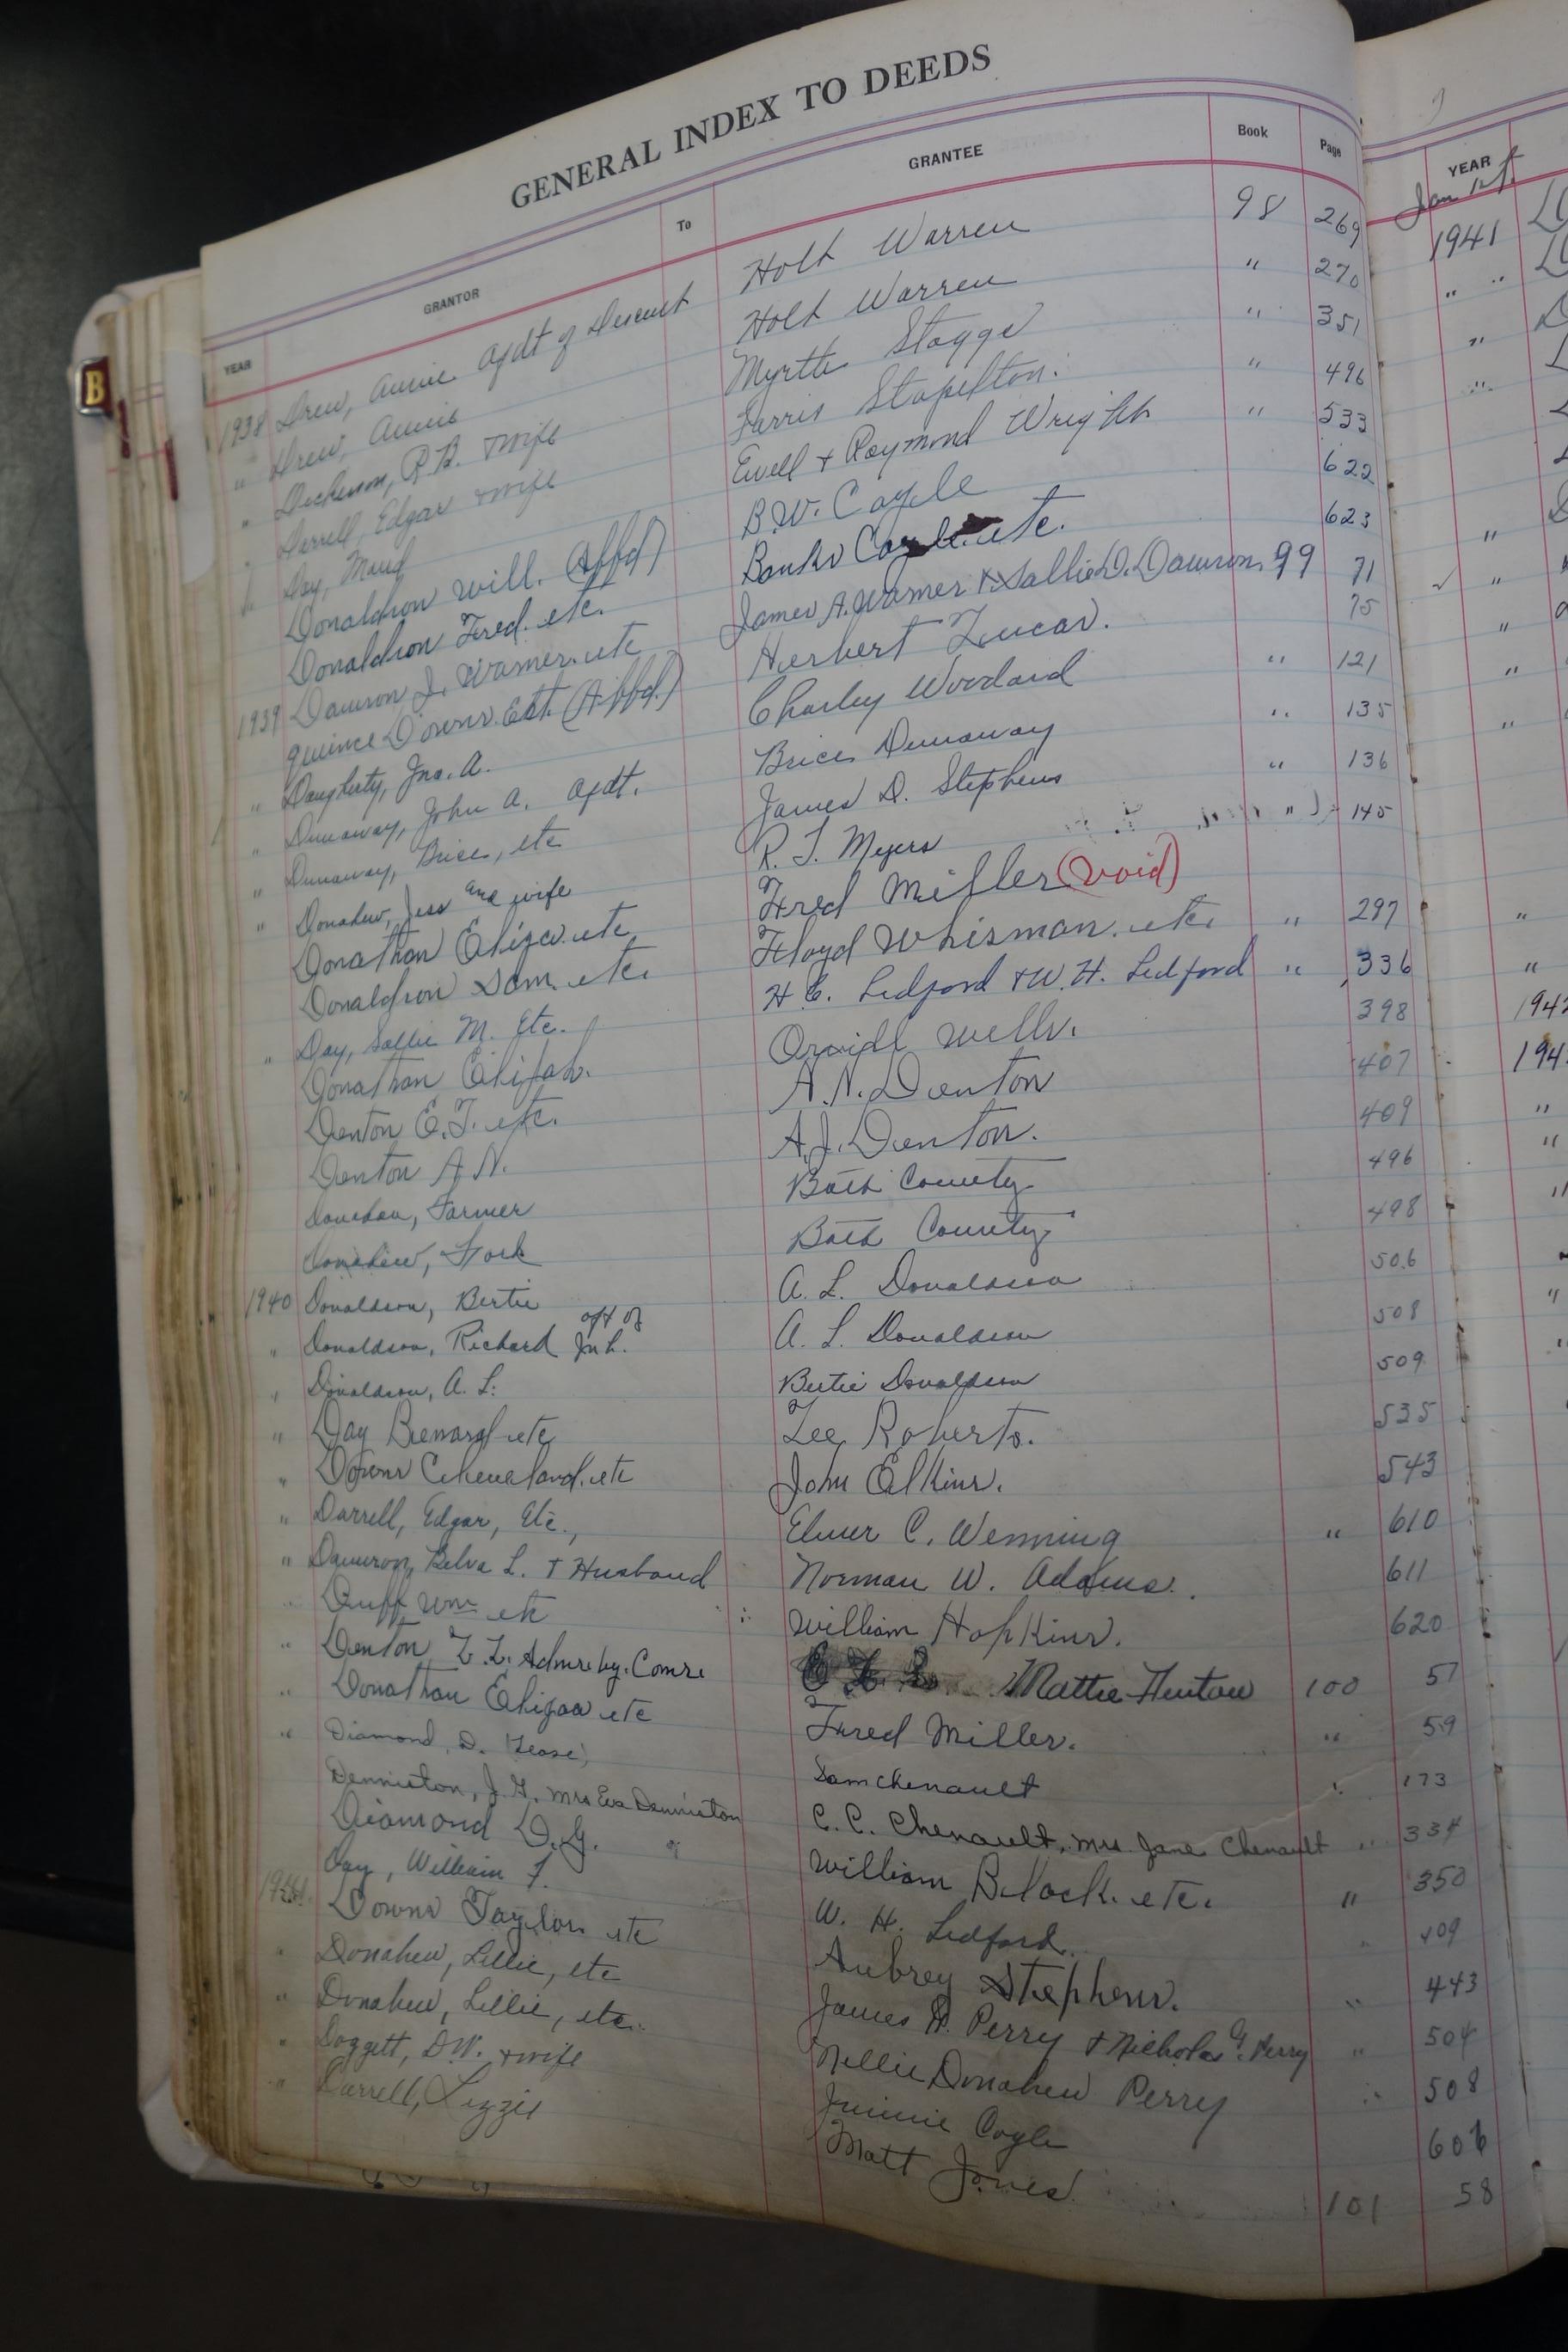 GENERAL INDEX TO DEEDS
YEAR GRANTOR To GRANTEE Book Page
1938 Drew, Annie Afdt of Descent Holt Warren 98 269
" Drew, Annie Holt Warren " 270
" Dickerson, R.B. + wife Myrtle Staggs " 351
" Darrell, Edgar + wife Farris Stapelton. " 496
" Day, Maud Ewell + Raymond Wright " 533
Donaldson Will. (Affd) B.W. Cayle 622
Donaldson Fred. etc. Banks etc. 623
1939 Dawson J. Warner. etc James A. Warner + Sallie D. Dawson. 99 71
Quince Downs. Est. (Affd.) Herbert Lucas. 75
" Daugherty, Jno. A. Charley Woodard " 121
" Dunaway, John A. Afdt. Brice Dunaway " 135
" Dunaway, Brice, etc James D. Stephens " 136
" Donahew, Jess and wife R. T. Myers " 145
Jonathan Elija. etc Fred Miller (void)
Donaldson Sam. etc. Floyd Whisman. etc. " 297
" Day, Sallie M. Etc. H. C. Ledford + W. H. Ledford " 336
Jonathan Elijah. Orvill Wells. 398
Denton E.T. etc. A. N. Denton 407
Denton A N. A. J. Denton. 409
Donahew, Farmer Bath County 496
Donahew, York Bath County 498
1940 Donaldson, Bertie A. L. Donaldson 506
" Donaldson, Richard aft of Inh. A. L. Donaldson 508
" Donaldson, A. L. Bertie Donaldson 509
" Day Bernard etc Lee Roberts. 535
" Downs Cleveland. etc John Elkins. 543
" Darrell, Edgar, Etc., Elmer C. Wenning " 610
" Dawson, Belva L. + Husband Norman W. Adams. 611
" Duff Wm etc William Hopkins. 620
" Denton Z. Z. Admr. by. Comr. Mattie Henton 100 57
" Donathan Elijah etc Fred Miller. " 59
" Diamond, D. (Lease) Sam Chenault " 173
Denniston, J. G. Mrs Eva Denniston C. C. Chenault, Mrs. Jane Chenault " 334
Diamond D. G. William Black. etc. " 350
1941. Day, William F. W. H. Ledford. 409
Downs Taylor. etc Aubrey Stephens. " 443
" Donahew, Lillie, etc James H. Perry + Nicholas G. Perry " 504
" Donahew, Lillie, etc. Nellie Donahew Perry " 508
" Doggett, D.W. + wife Jimmie Cogle 606
" Darrell, Lizzie Matt Jones 101 58
YEAR
Jan 1st
1941
1942
B